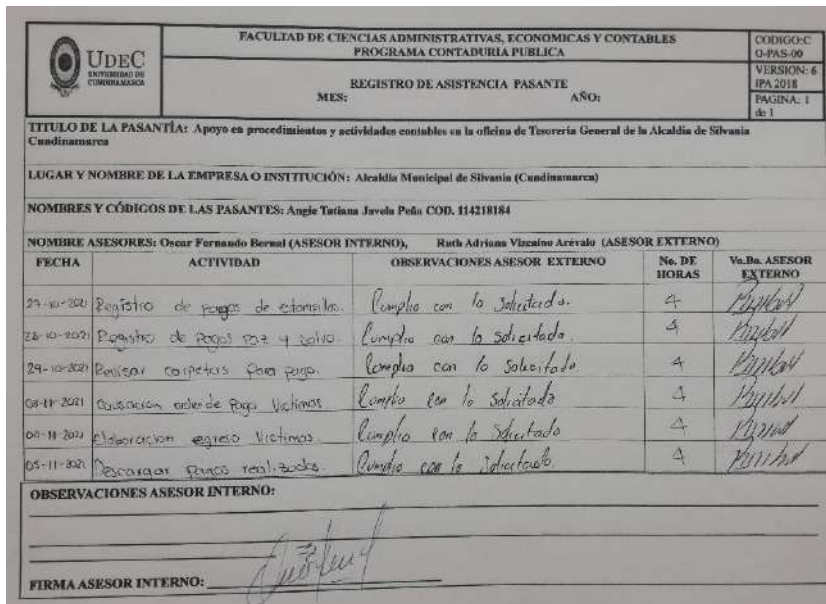 UDEC
UNIVERSIDAD DE
CUNDINAMARCA
FACULTAD DE CIENCIAS ADMINISTRATIVAS, ECONOMICAS Y CONTABLES
PROGRAMA CONTADURIA PUBLICA
REGISTRO DE ASISTENCIA PASANTE
MES: AÑO:
CODIGO:C
O-PAS-00
VERSION: 6
IPA 2018
PAGINA: 1
de 1
TITULO DE LA PASANTÍA: Apoyo en procedimientos y actividades contables en la oficina de Tesorería General de la Alcaldía de Silvania
Cundinamarca
LUGAR Y NOMBRE DE LA EMPRESA O INSTITUCIÓN: Alcaldía Municipal de Silvania (Cundinamarca)
NOMBRES Y CÓDIGOS DE LAS PASANTES: Angie Tatiana Javela Peña COD. 114218184
NOMBRE ASESORES: Oscar Fernando Bernal (ASESOR INTERNO), Ruth Adriana Vizcaino Arévalo (ASESOR EXTERNO)
FECHA ACTIVIDAD OBSERVACIONES ASESOR EXTERNO No. DE HORAS Vo.Bo. ASESOR EXTERNO
-10-2021 Registro de pagos de Cumplio con lo Solicitado. 4
28-10-2021 Registro de Pagos paz y salvo. Cumplio con lo solicitado. 4
29-10-2021 Revisar carpetas para pago. Cumplio con lo Solicitado 4
03-11-2021 Causacion orden de Pago Victimas Cumplio con lo Solicitado 4
-11-2021 Elaboracion egreso Victimas Cumplio con lo Solicitado 4
05-11-2021 Descargar Pagos realizados. Cumplio con lo Solicitado. 4
OBSERVACIONES ASESOR INTERNO:
FIRMA ASESOR INTERNO: